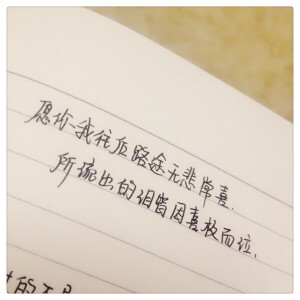 愿你我往后路途无悲常喜.
所流出的泪皆因喜极而泣.
的